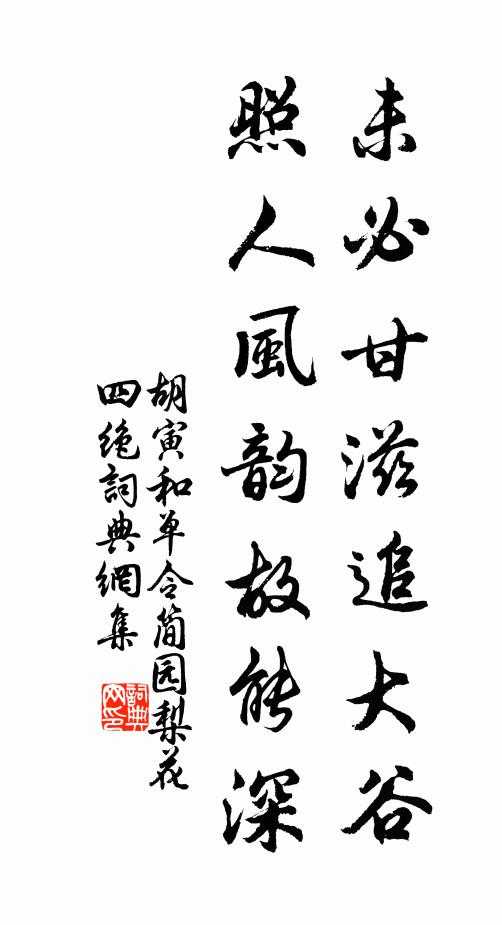 未必甘滋追大谷
照人風韵故能深
胡寅和单令简园梨花
四绝詞典網集
詞典
网印